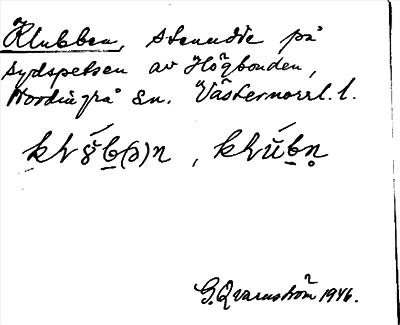 Klubben, stenudde på
sydspetsen av Högbonden,
Nordingrå sn. Västernorrl. l.
G. Qvarnström 1946.